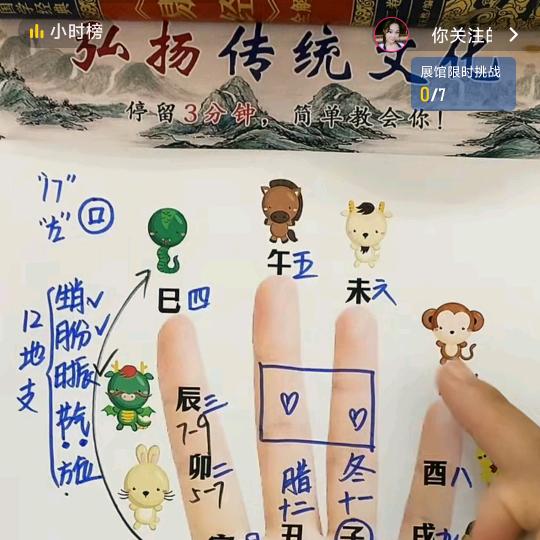 小时榜
你关注的
展馆限时挑战
0/7
弘扬传统文化
停留3分钟，简单教会你！
午五
巳四
未六
12地支
生肖
月份
时辰
节气
方位
辰三
7-9
卯二
5-7
腊十二
冬十一
酉八
丑
子
戌九